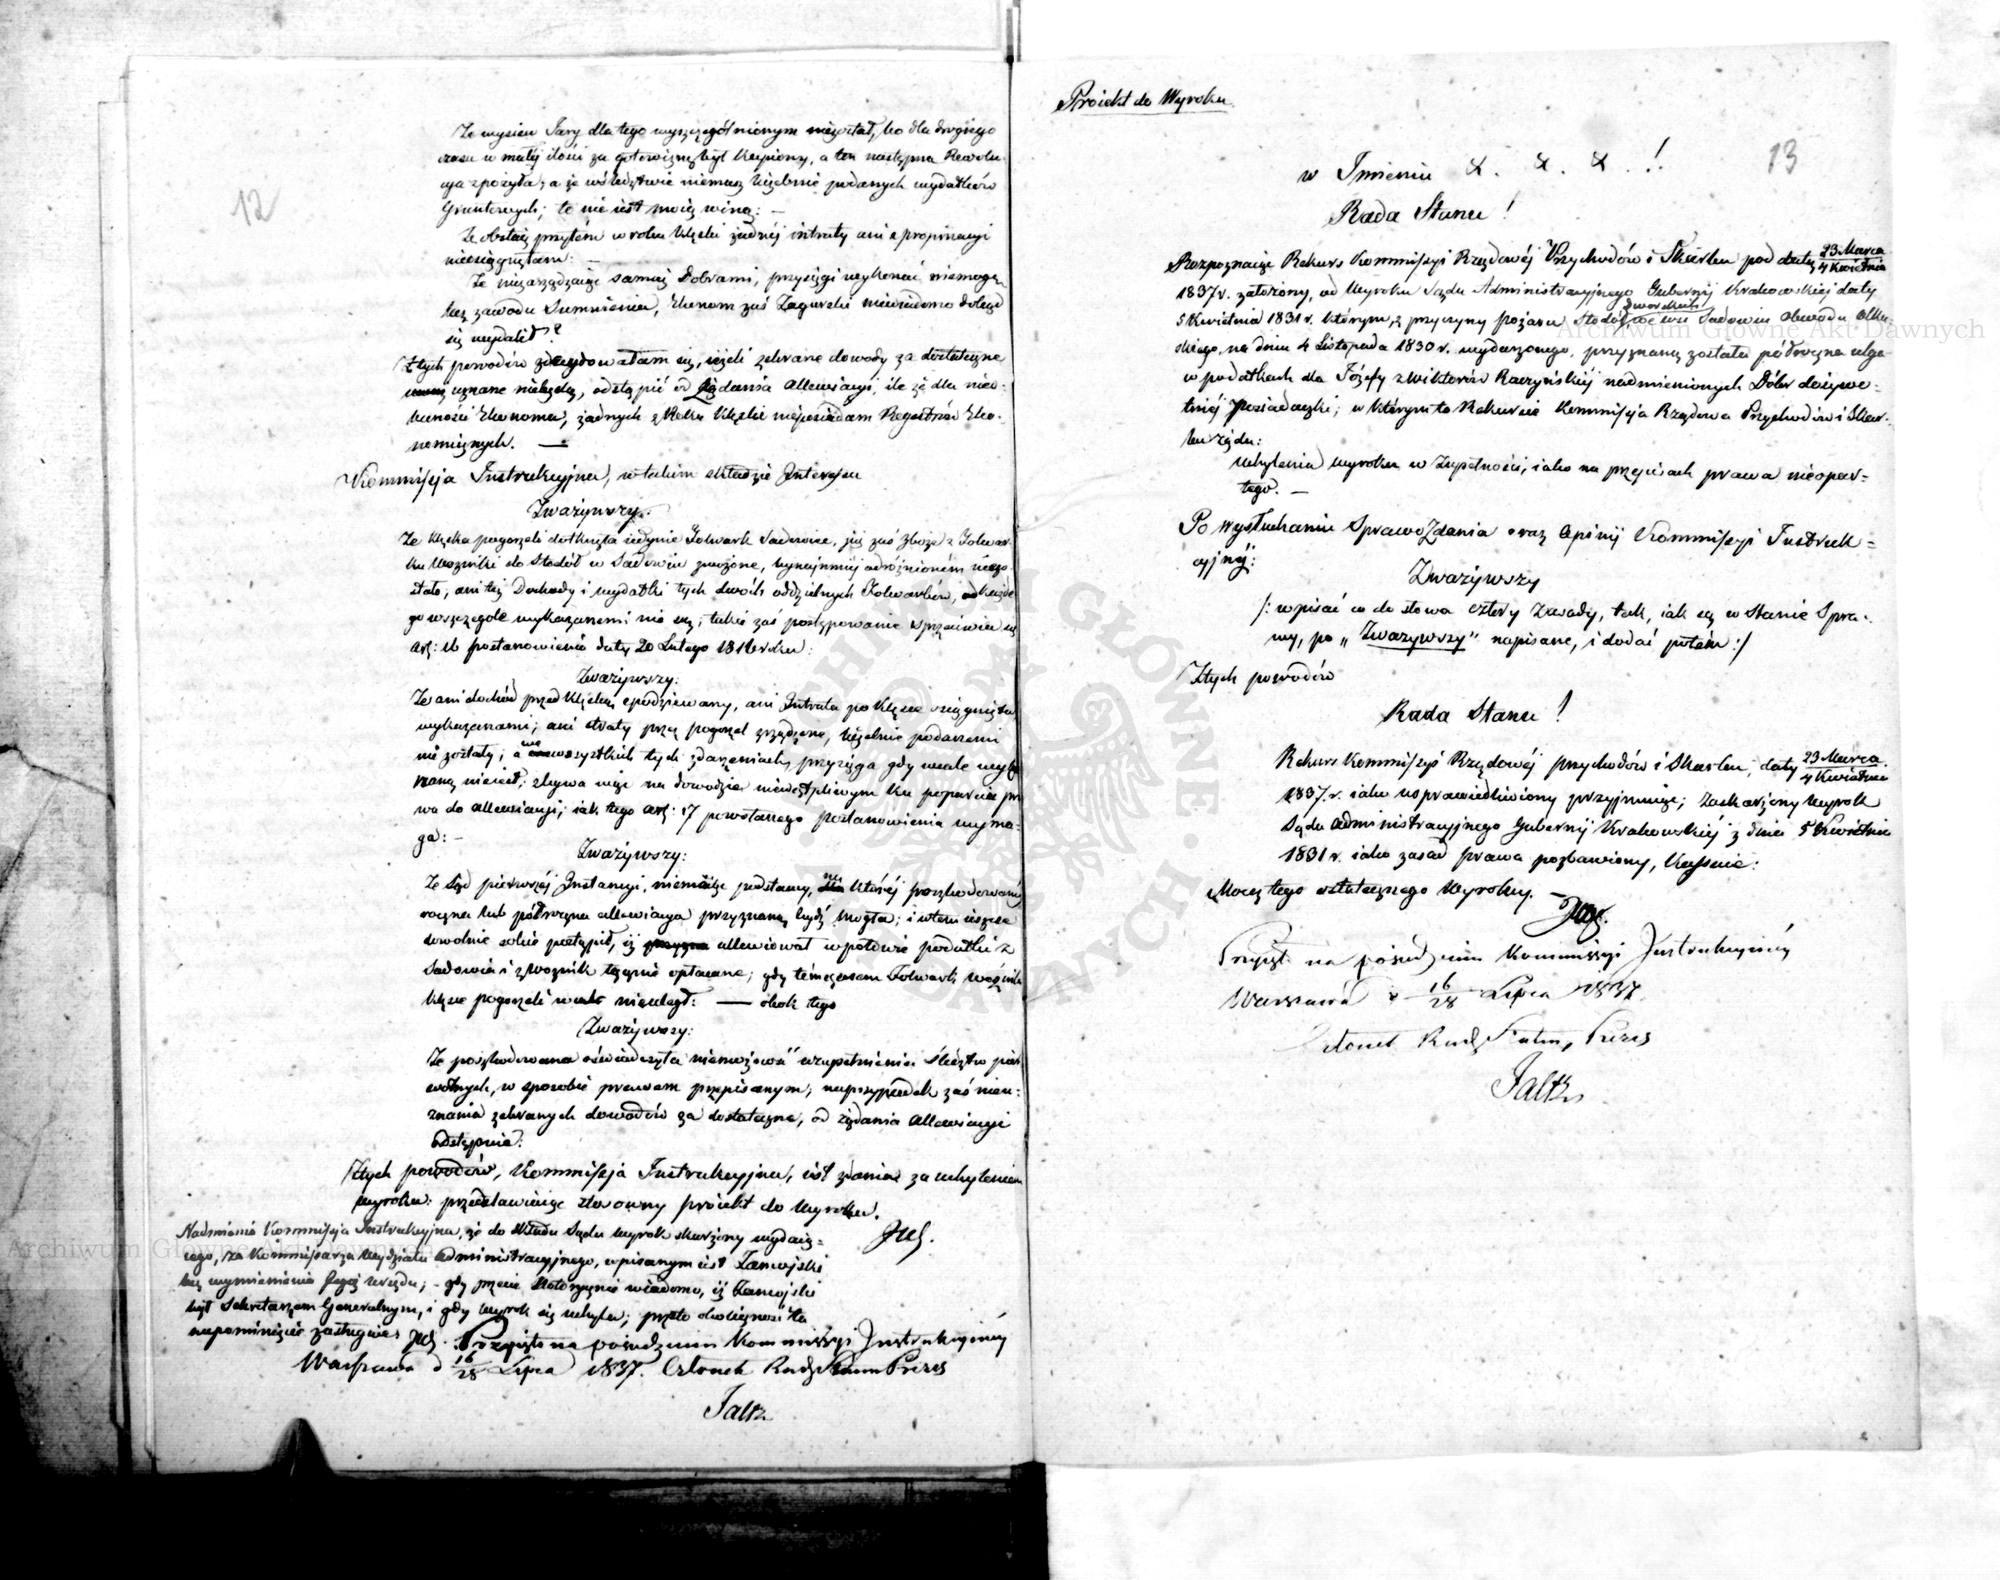 12
Że wysiew Jary dla tego wyszczególnionym niezostał, bo dla drogiego
czasu w małéj ilości za gotowiznę był kupiony, a ten następna Rewolu-
cya spożyła; a że w śledztwie niemasz liczebnie podanych wydatków
Gruntowych; to nie iest moią winą: —
Że obstaię przytém w roku klęski żadnéj intraty ani z propinacyi
nieosiągnęłam: —
Że niezarządzaiąc samaą Dobrami, przysięgi wykonać niemogę
bez zawodu Sumnienia, Ekonom zaś Zagurski niewiadomo dokąd
się wydalił?
Z tych powodów zdecydowałam się, ieżeli zebrane dowody za dostateczne
uznane niebędą, odstąpić od żądania allewiacyi, ile że dla nied-
bałości Ekonoma, żadnych z Roku klęski nieposiadam Regestrów Eko-
nomicznych. —
Kommissyja Instrukcyjna, w takim składzie Interessu
Zważywszy:
Że klęska pogorzeli dotknęła iedynie Folwark Sadowie, już zaś zboże z Folwar-
ku Woźniki do Stodół w Sadowiu zwożone, bynajmniéj odróżnioném niezo-
stało, ani też Dochody i wydatki tych dwóch oddzielnych Folwarków, od każde-
go w szczególe wykazanemi nie są; takie zaś postępowanie sprzeciwia się
art: 16 postanowienia daty 20 Lutego 1816 roku:
Zważywszy:
Że ani dochód przed klęską spodziewany, ani Intrata po klęsce osiągnięta
wykazanemi; ani straty przez pogorzel zrządzone, liczebnie podanemi
nie zostały; a we wszystkich tych zdarzeniach, przysięga gdy wcale wyko-
naną nieiest; zbywa więc na dowodzie niewątpliwym ku poparciu pra-
wa do allewiacyi, iak tego art: 17 powołanego postanowienia wyma-
ga: —
Zważywszy:
Że Sąd pierwszéj Instancyi, niemiał podstawy, na któréj poszkodowanéj
roczna lub półroczna allewiacya przyznaną bydź mogła; i w tem ieszcze
dowolnie sobie postąpił, iż allewiował w połowie podatki z
Sadowia i z Woźnik łącznie opłacane; gdy tymczasem Folwark Woźniki
klęsce pogorzeli wcale nieuległ: — obok tego
Zważywszy:
Że poszkodowana oświadczyła niemożność uzupełnienia śledztw pier-
wotnych, w sposobie prawem przepisanym; na przypadek zaś nieu-
znania zebranych dowodów za dostateczne, od żądania Allewiacyi
odstępuie:
Z tych powodów, Kommissyja Instrukcyjna, iest zdania za uchyleniem
wyroku: przedstawiaiąc stosowny proiekt do Wyroku.
Nadmienia Kommissyja Instrukcyjna, że do składu Sądu wyrok skarżony wydaią-
cego, za Kommissarza Wydziału Administracyjnego, wpisanym iest Zamojski
bez wymienienia Jego Urzędu; — gdy przecie Notorycznie wiadomo, iż Zamojski
był Sekretarzem Generalnym, i gdy Wyrok się uchyla; przeto okoliczność ta
napomnięcie zasługuie:
Przyięto na posiedzeniu Kommissyi Instrukcyinéy
Warszawa d 16/28 Lipca 1837. Członek Rady Stanu Prezes
Faltz
Proiekt do Wyroku.
13
w Imieniu &. &. &.!
Rada Stanu!
Rozpoznaiąc Rekurs Kommissyi Rządowéj Przychodów i Skarbu pod datą 23 Marca/4 Kwietnia
1837 r. założony, od Wyroku Sądu Administracyjnego Gubernij Krakowskiéj daty
5 Kwietnia 1831 r. którym, z przyczyny pożaru Stodół dworskich we wsi Sadowiu Obwodu Olku-
skiego, na dniu 4 Listopada 1830 r. wydarzonego, przyznaną została półroczna ulga
w podatkach dla Józefy z Wiktorów Raczyńskiéj nadmienionych Dóbr dożywo-
tniéj posiadaczki; w którym to Rekursie Kommissyja Rządowa Przychodów i Skar-
bu żąda:
Uchylenia wyroku w Zupełności, iako na przepisach prawa nieopar-
tego. —
Po wysłuchaniu Sprawozdania oraz Opinij Kommissyi Instruk-
cyjnéj:
Zważywszy
/: wpisać co do słowa cztery Zasady, tak, iak są w Stanie Spra-
wy, po „Zważywszy" napisane, i dodać potém :/
Z tych powodów
Rada Stanu!
Rekurs Kommissyi Rządowéj Przychodów i Skarbu, daty 23 Marca/4 Kwietnia
1837. r. iako usprawiedliwiony przyjmuiąc; zaskarżony Wyrok
Sądu Administracyjnego Gubernij Krakowskiéj z dnia 5 Kwietnia
1831 r. iako zasad prawa pozbawiony, Kassuie:
Mocą tego ostatecznego Wyroku.
Przyięto na posiedzeniu Kommissyi Instrukcyinéy
Warszawa d 16/28 Lipca 1837.
Członek Rady Stanu, Prezes
Faltz
Archiwum Główne Akt Dawnych